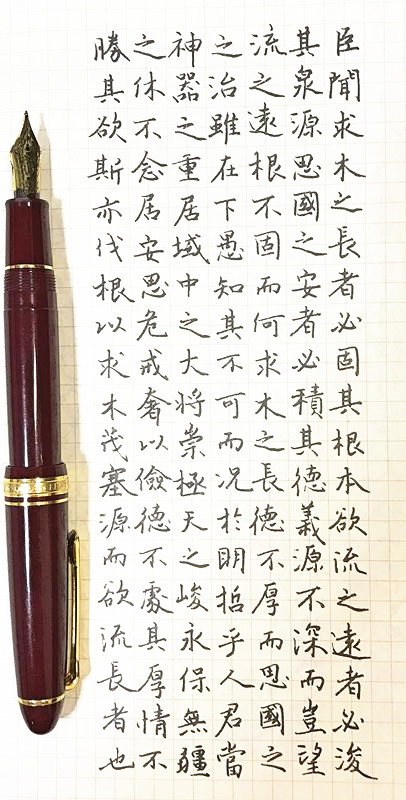 臣聞求木之長者必固其根本欲流之遠者必浚
其泉源思國之安者必積其德義源不深而豈望
流之遠根不固而何求木之長德不厚而思國之
之治雖在下愚知其不可而況於明哲乎人君當
神器之重居域中之大將崇極天之峻永保無疆
之休不念居安思危戒奢以儉德不處其厚情不
勝其欲斯亦伐根以求木茂塞源而欲流長者也